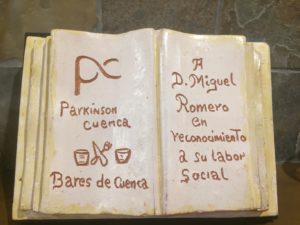 Parkinson
cuenca
Bares de Cuenca
A
D. Miguel
Romero
en
reconocimiento
a su labor
Social